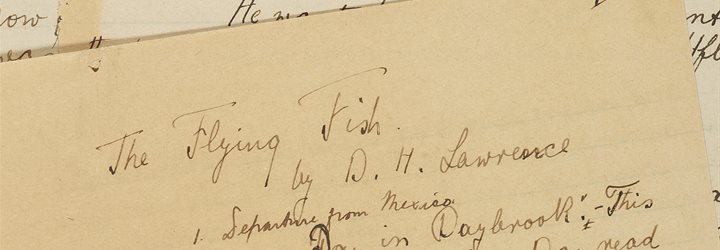 The Flying Fish.
by D. H. Lawrence
1. Departure from Mexico.
Day in Daybrook." - This
read
He